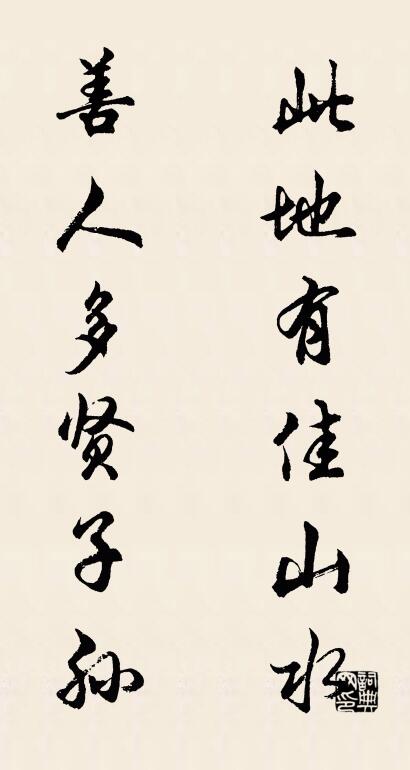 此地有佳山水
善人多贤子孙